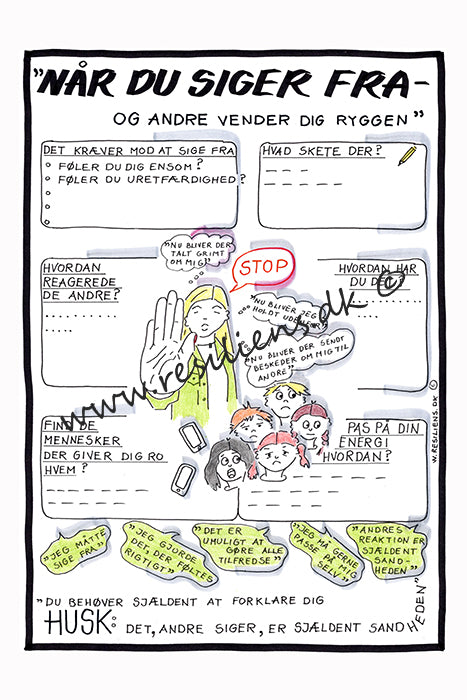 "NÅR DU SIGER FRA-
OG ANDRE VENDER DIG RYGGEN"
DET KRÆVER MOD AT SIGE FRA
FØLER DU DIG ENSOM?
FØLER DU URETFÆRDIGHED?
HVAD SKETE DER?
"NU BLIVER DER
TALT GRIMT
OM MIG"
STOP
HVORDAN
REAGEREDE
DE ANDRE?
HVORDAN HAR
DU DET
"NU BLIVER JEG
HOLDT UDENFOR"
"NU BLIVER DER SENDT
BESKEDER OM MIG TIL
ANDRE"
www.resiliens.dk ©
FIND DE
MENNESKER
DER GIVER DIG RO
HVEM?
PAS PÅ DIN
ENERGI
HVORDAN?
W.RESILIENS.DK ©
"JEG MÅTTE
SIGE FRA"
"JEG GJORDE
DET, DER FØLTES
RIGTIGT"
"DET ER
UMULIGT AT
GØRE ALLE
TILFREDSE"
"JEG MÅ GERNE
PASSE PÅ MIG
SELV"
"ANDRES
REAKTION ER
SJÆLDENT
SAND-
HEDEN"
"DU BEHØVER SJÆLDENT AT FORKLARE DIG
HUSK: DET, ANDRE SIGER, ER SJÆLDENT SANDHEDEN"